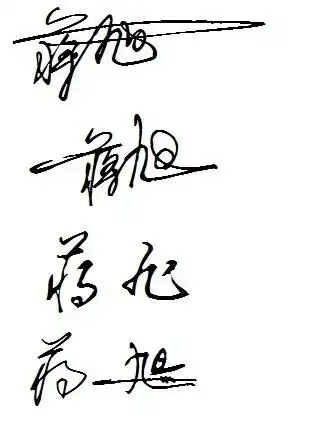 蒋旭
蒋旭
蒋旭
蒋旭